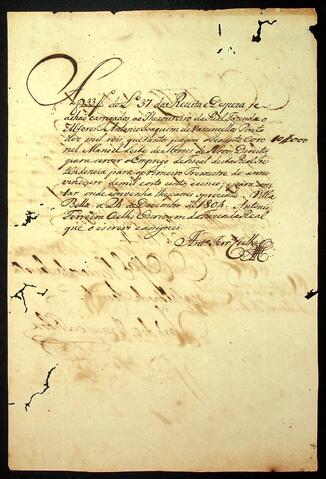 A f 33 do L.º 37 da Receita e Despeza se
achão carregados ao Thezoureiro da Real Fazenda o
Alferes Antonio Joaquim de Vasconcellos Pinto
dez mil reis que pagou o Coro
nel Manoel Leite de Moraes de Novo Direito 10$000
para servir o Emprego de Fiscal desta Real In
tendencia para o primeiro trimestre do anno
vindouro de mil oito centos e cinco; e para cons
tar onde convenha lhe passei o prezente. Villa
Bella a 24 de Dezembro de 1804. Antonio
Ferreira Coelho Escrivam da Fazenda Real
que o escrevi e assignei.
Ant.º Ferr.ª Coelho